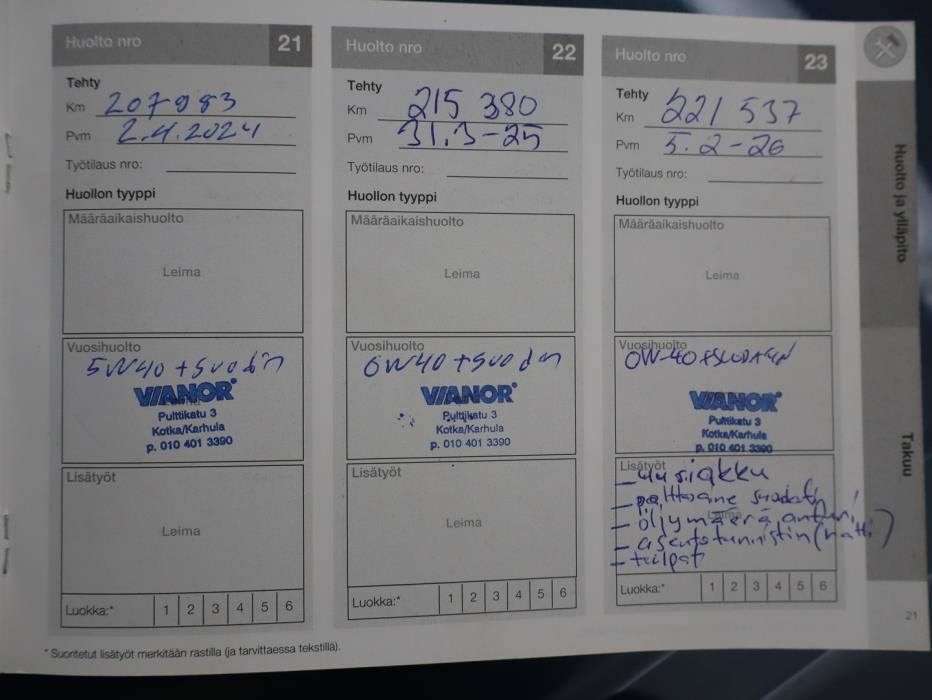 Huolto nro 21
Tehty
Km 207983
Pvm 2.4.2024
Työtilaus nro:
Huollon tyyppi
Määräaikaishuolto
Leima
Vuosihuolto
5W40 + suodin
VIANOR
Pulttikatu 3
Kotka/Karhula
p. 010 401 3390
Lisätyöt
Leima
Luokka:* 1 2 3 4 5 6
Huolto nro 22
Tehty
Km 215 380
Pvm 31.3-25
Työtilaus nro:
Huollon tyyppi
Määräaikaishuolto
Leima
Vuosihuolto
0W40 + suodin
VIANOR
Pulttikatu 3
Kotka/Karhula
p. 010 401 3390
Lisätyöt
Leima
Luokka:* 1 2 3 4 5 6
Huolto nro 23
Tehty
Km 221 537
Pvm 5.2-26
Työtilaus nro:
Huollon tyyppi
Määräaikaishuolto
Leima
Vuosihuolto
0W-40 +
VIANOR
Pulttikatu 3
Kotka/Karhula
p. 010 401 3390
Lisätyöt
- uusi akku
- polttoaine suodatin
- öljymäärä anturi
- asentotunnistin (ratti)
- teilpat
Leima
Luokka:* 1 2 3 4 5 6
Huolto ja ylläpito
Takuu
21
* Suoritetut lisätyöt merkitään rastilla (ja tarvittaessa tekstillä).